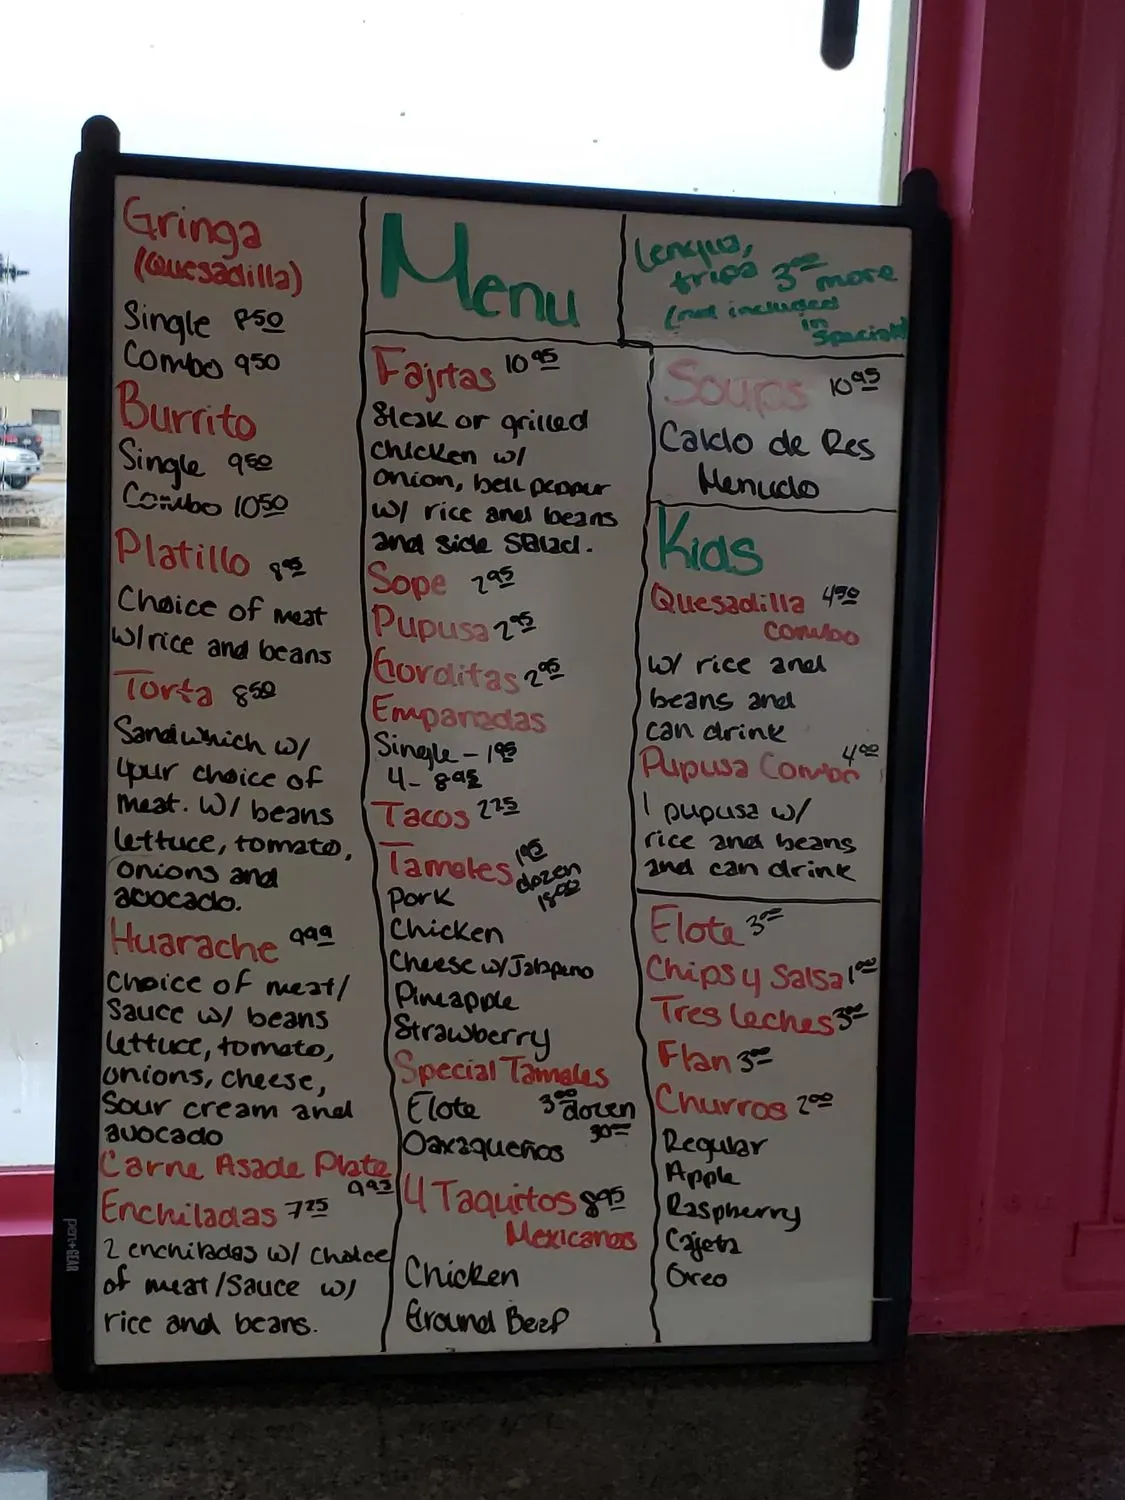 Gringa
(Quesadilla)
Single 850
Combo 950
Burrito
Single 950
Combo 1050
Platillo 895
Choice of meat
w/rice and beans
Torta 850
Sandwhich w/
your choice of
meat. w/ beans
lettuce, tomato,
onions and
avocado.
Huarache 999
Choice of meat/
Sauce w/ beans
lettuce, tomato,
onions, cheese,
Sour cream and
avocado
Carne Asade Plate
995
Enchiladas 725
2 enchiladas w/ choice
of meat/Sauce w/
rice and beans.
Menu
Fajitas 1095
Steak or grilled
chicken w/
onion, bell pepper
w/ rice and beans
and side salad.
Sope 295
Pupusa 295
Gorditas 295
Empanadas
Single - 195
4 - 895
Tacos 225
Tamales 195
dozen
1800
Pork
Chicken
Cheese w/Jalapeno
Pineapple
Strawberry
Special Tamales
Elote 300 dozen
Oaxaqueños 3000
4 Taquitos 895
Mexicanos
Chicken
Ground Beef
Lengua,
tripa 300 more
(not included
in
Specials)
Soups 1095
Caldo de Res
Menudo
Kids
Quesadilla 450
combo
w/ rice and
beans and
can drink
Pupusa Combo 400
1 pupusa w/
rice and beans
and can drink
Elote 300
Chips y Salsa 100
Tres leches 300
Flan 300
Churros 200
Regular
Apple
Raspberry
Cajeta
Oreo
pen+GEAR